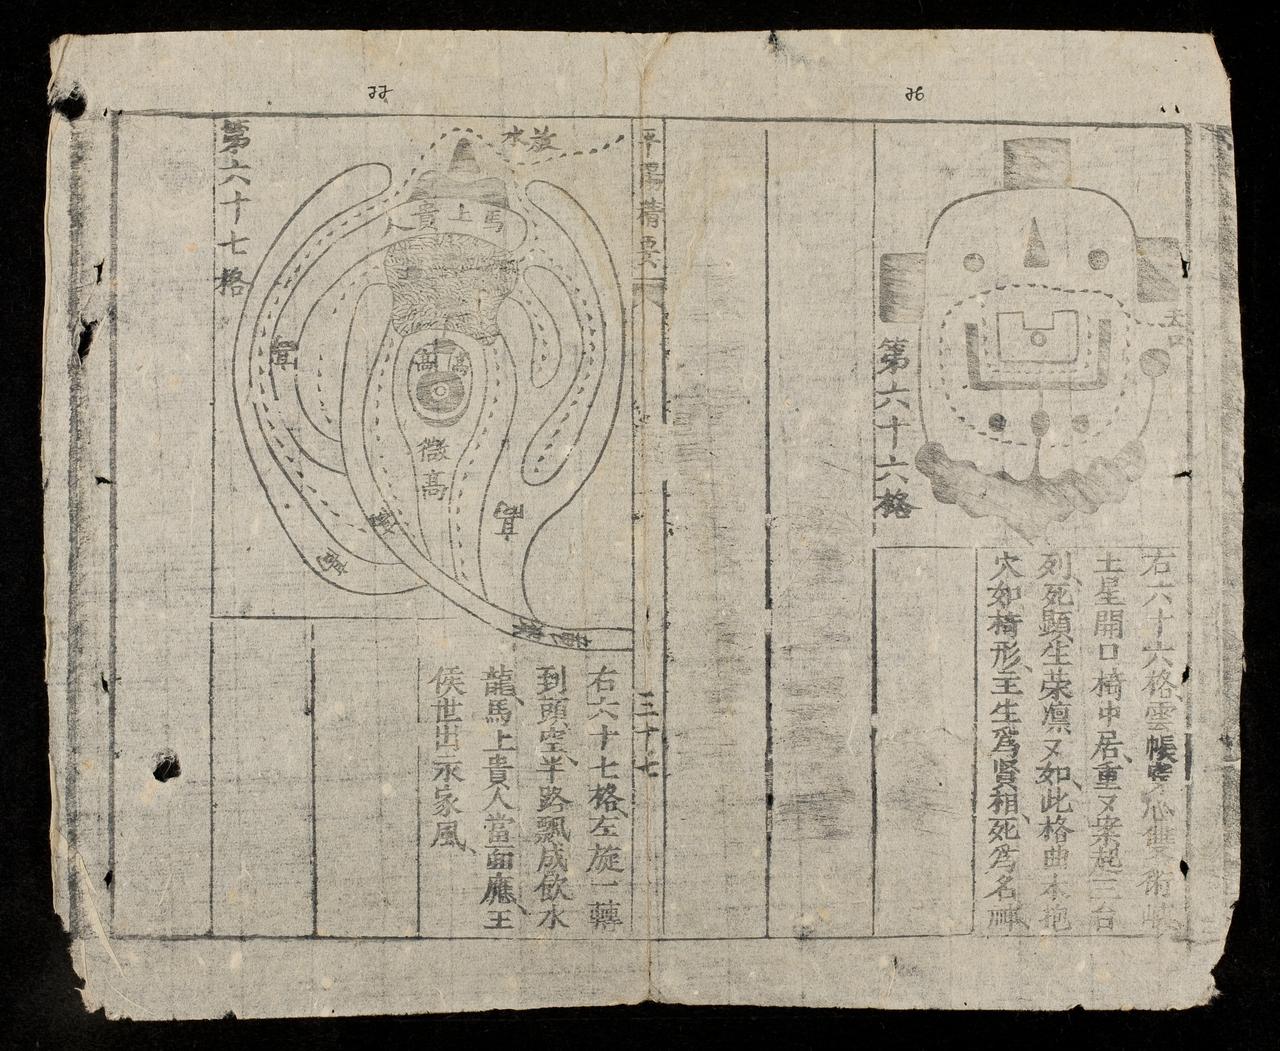 26
去口
第六十六格
右六十六格雲帳穿心雙術峽
土星開口椅中居重又案起三台
列死顯生荣凛又如此格曲木抱
穴如椅形主生為賢相死為名神
平陽精要
三十七
27
放水
馬上貴人
高高
微高
右六十七格左旋一轉
到頭空半路飄成飲水
龍馬上貴人當面應王
侯世出示家風
第六十七格